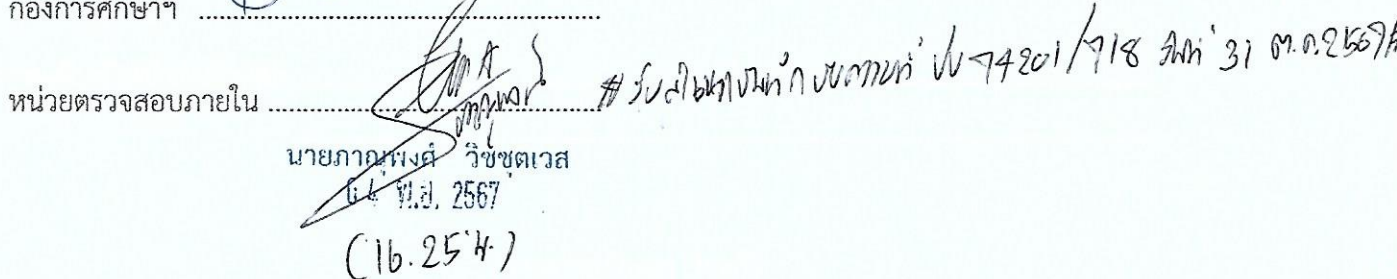 กองการศึกษาฯ ............................................................
หน่วยตรวจสอบภายใน ............................................................ # รับสำเนาบันทึกข้อความที่ ปข 74201/718 วันที่ 31 ต.ค. 2567
นายภาณุพงศ์ วิชชุตเวส
04 พ.ย. 2567
(16.25 น.)